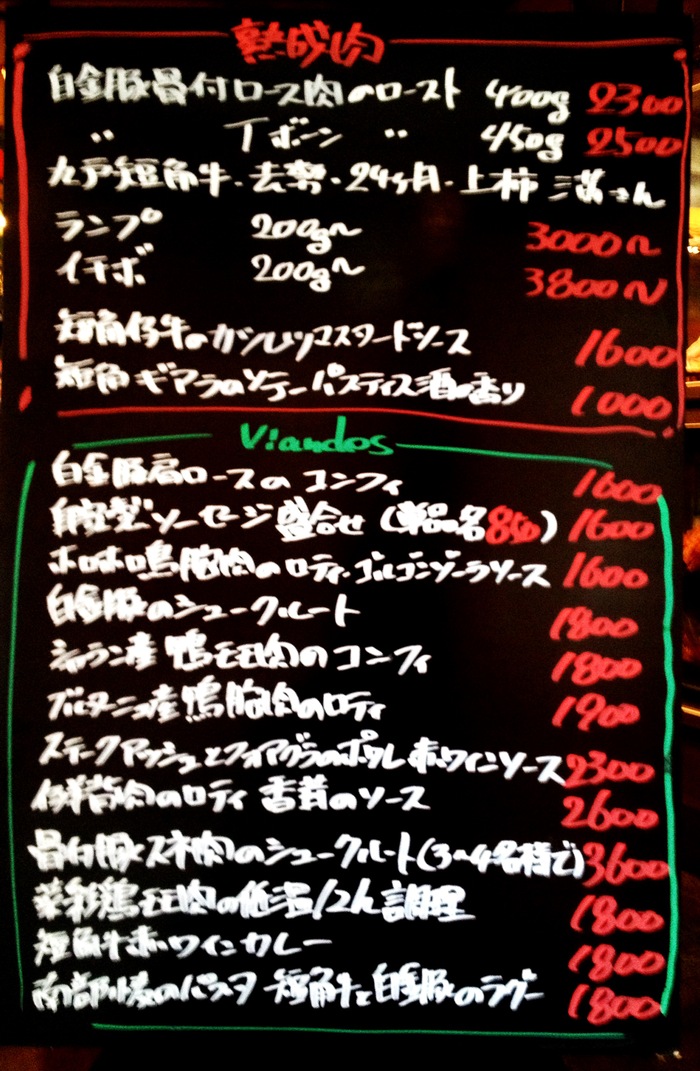 熟成肉
白金豚骨付ロース肉のロースト 400g 2300
〃 Tボーン 〃 450g 2500
九戸短角牛・去勢・24ヶ月・上柿 満さん
ランプ 200g〜 3000〜
イチボ 200g〜 3800〜
短角仔牛のカツレツ マスタードソース 1600
短角ギアラのソテー パスティス酒の香り 1000
Viandes
白金豚肩ロースのコンフィ 1600
自家製ソーセージ盛合せ (単品各850) 1600
ホロホロ鳥胸肉のロティ・ゴルゴンゾーラソース 1600
白金豚のシュークルート 1800
シャラン産 鴨モモ肉のコンフィ 1800
ブルターニュ産鴨胸肉のロティ 1900
ステークアッシェとフォアグラのポワレ 赤ワインソース 2300
仔羊背肉のロティ 香茸のソース 2600
骨付豚スネ肉のシュークルート(3〜4名様で) 3600
菜彩鶏モモ肉の低温 調理 1800
短角牛赤ワインカレー 1800
南部小麦のパスタ 短角牛と白金豚のラグー 1800